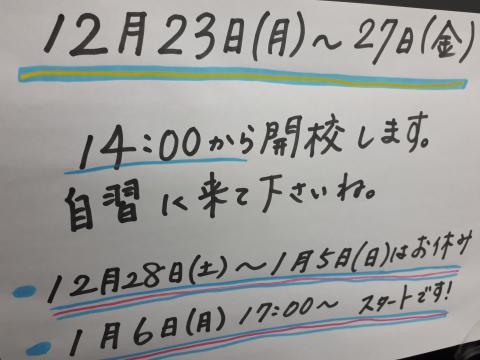 12月23日(月)～27日(金)
14:00から開校します。
自習に来て下さいね。
12月28日(土)～1月5日(日)はお休み
1月6日(月) 17:00～ スタートです!